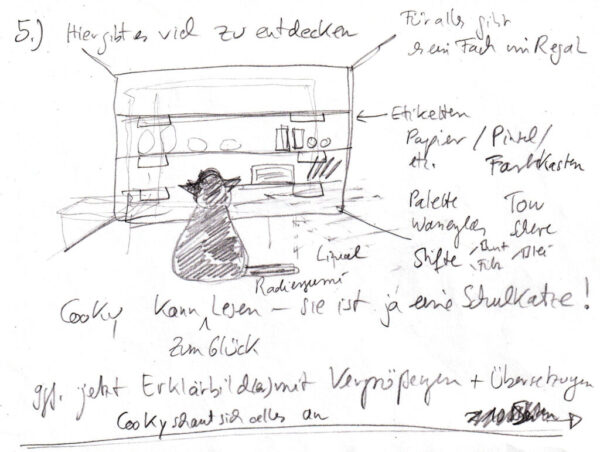 5.) Hier gibt es viel zu entdecken
Für alles gibt
es ein Fach im Regal
Etiketten
Papier / Pinsel /
etc. Farbkasten
Palette Ton
Wasserglas Schere
Stifte / Bunt / Blei
Filz
Lineal
Radiergummi
Cooky kann lesen – sie ist ja eine Schulkatze!
zum Glück
ggf. jetzt Erklärbild(er) mit Vergrößerungen + Übersetzungen
Cooky schaut sich alles an